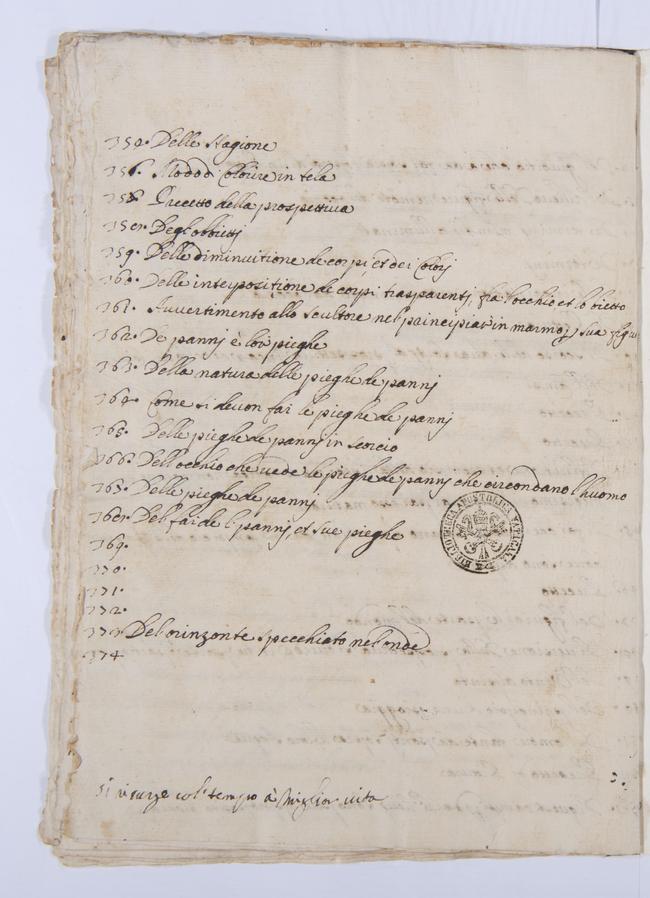 Delle stagione
Modo di Colorire in tela
Precetto della prospettiva
Degl obbietti
359. Delle diminuitione de corpi et dei Colorj
360. Delle interpositione de corpi trasparentj fra l'occhio et l'obietto
361. Avvertimento allo scultore nel principiar in marmo sua figu
362. De pannj è lor pieghe
363. Della natura delle pieghe de pannj
364. Come si devon far le pieghe de pannj
365. Delle pieghe de pannj in scorcio
366. Dell occhio che vede le pieghe de pannj che circondano l'huomo
Delle pieghe de pannj
Del far de l pannj, et sue pieghe
369.
370.
371.
372.
373 Del orinzonte specchiato nel onde
374
BIBLIOTHECA APOSTOLICA VATICANA
si risurge col tempo à miglior vita